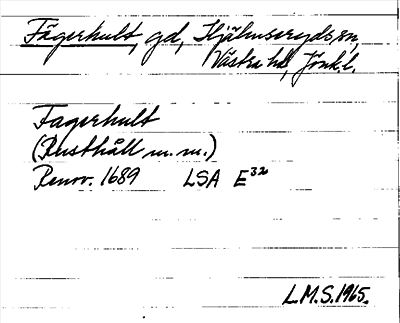 Fägerhult, gd, Hjälmseryds sn,
Västra hd, Jönk. l.
Fagerhult
(Rusthåll m.m.)
Renov. 1689 LSA E³²
L.M.S. 1965.